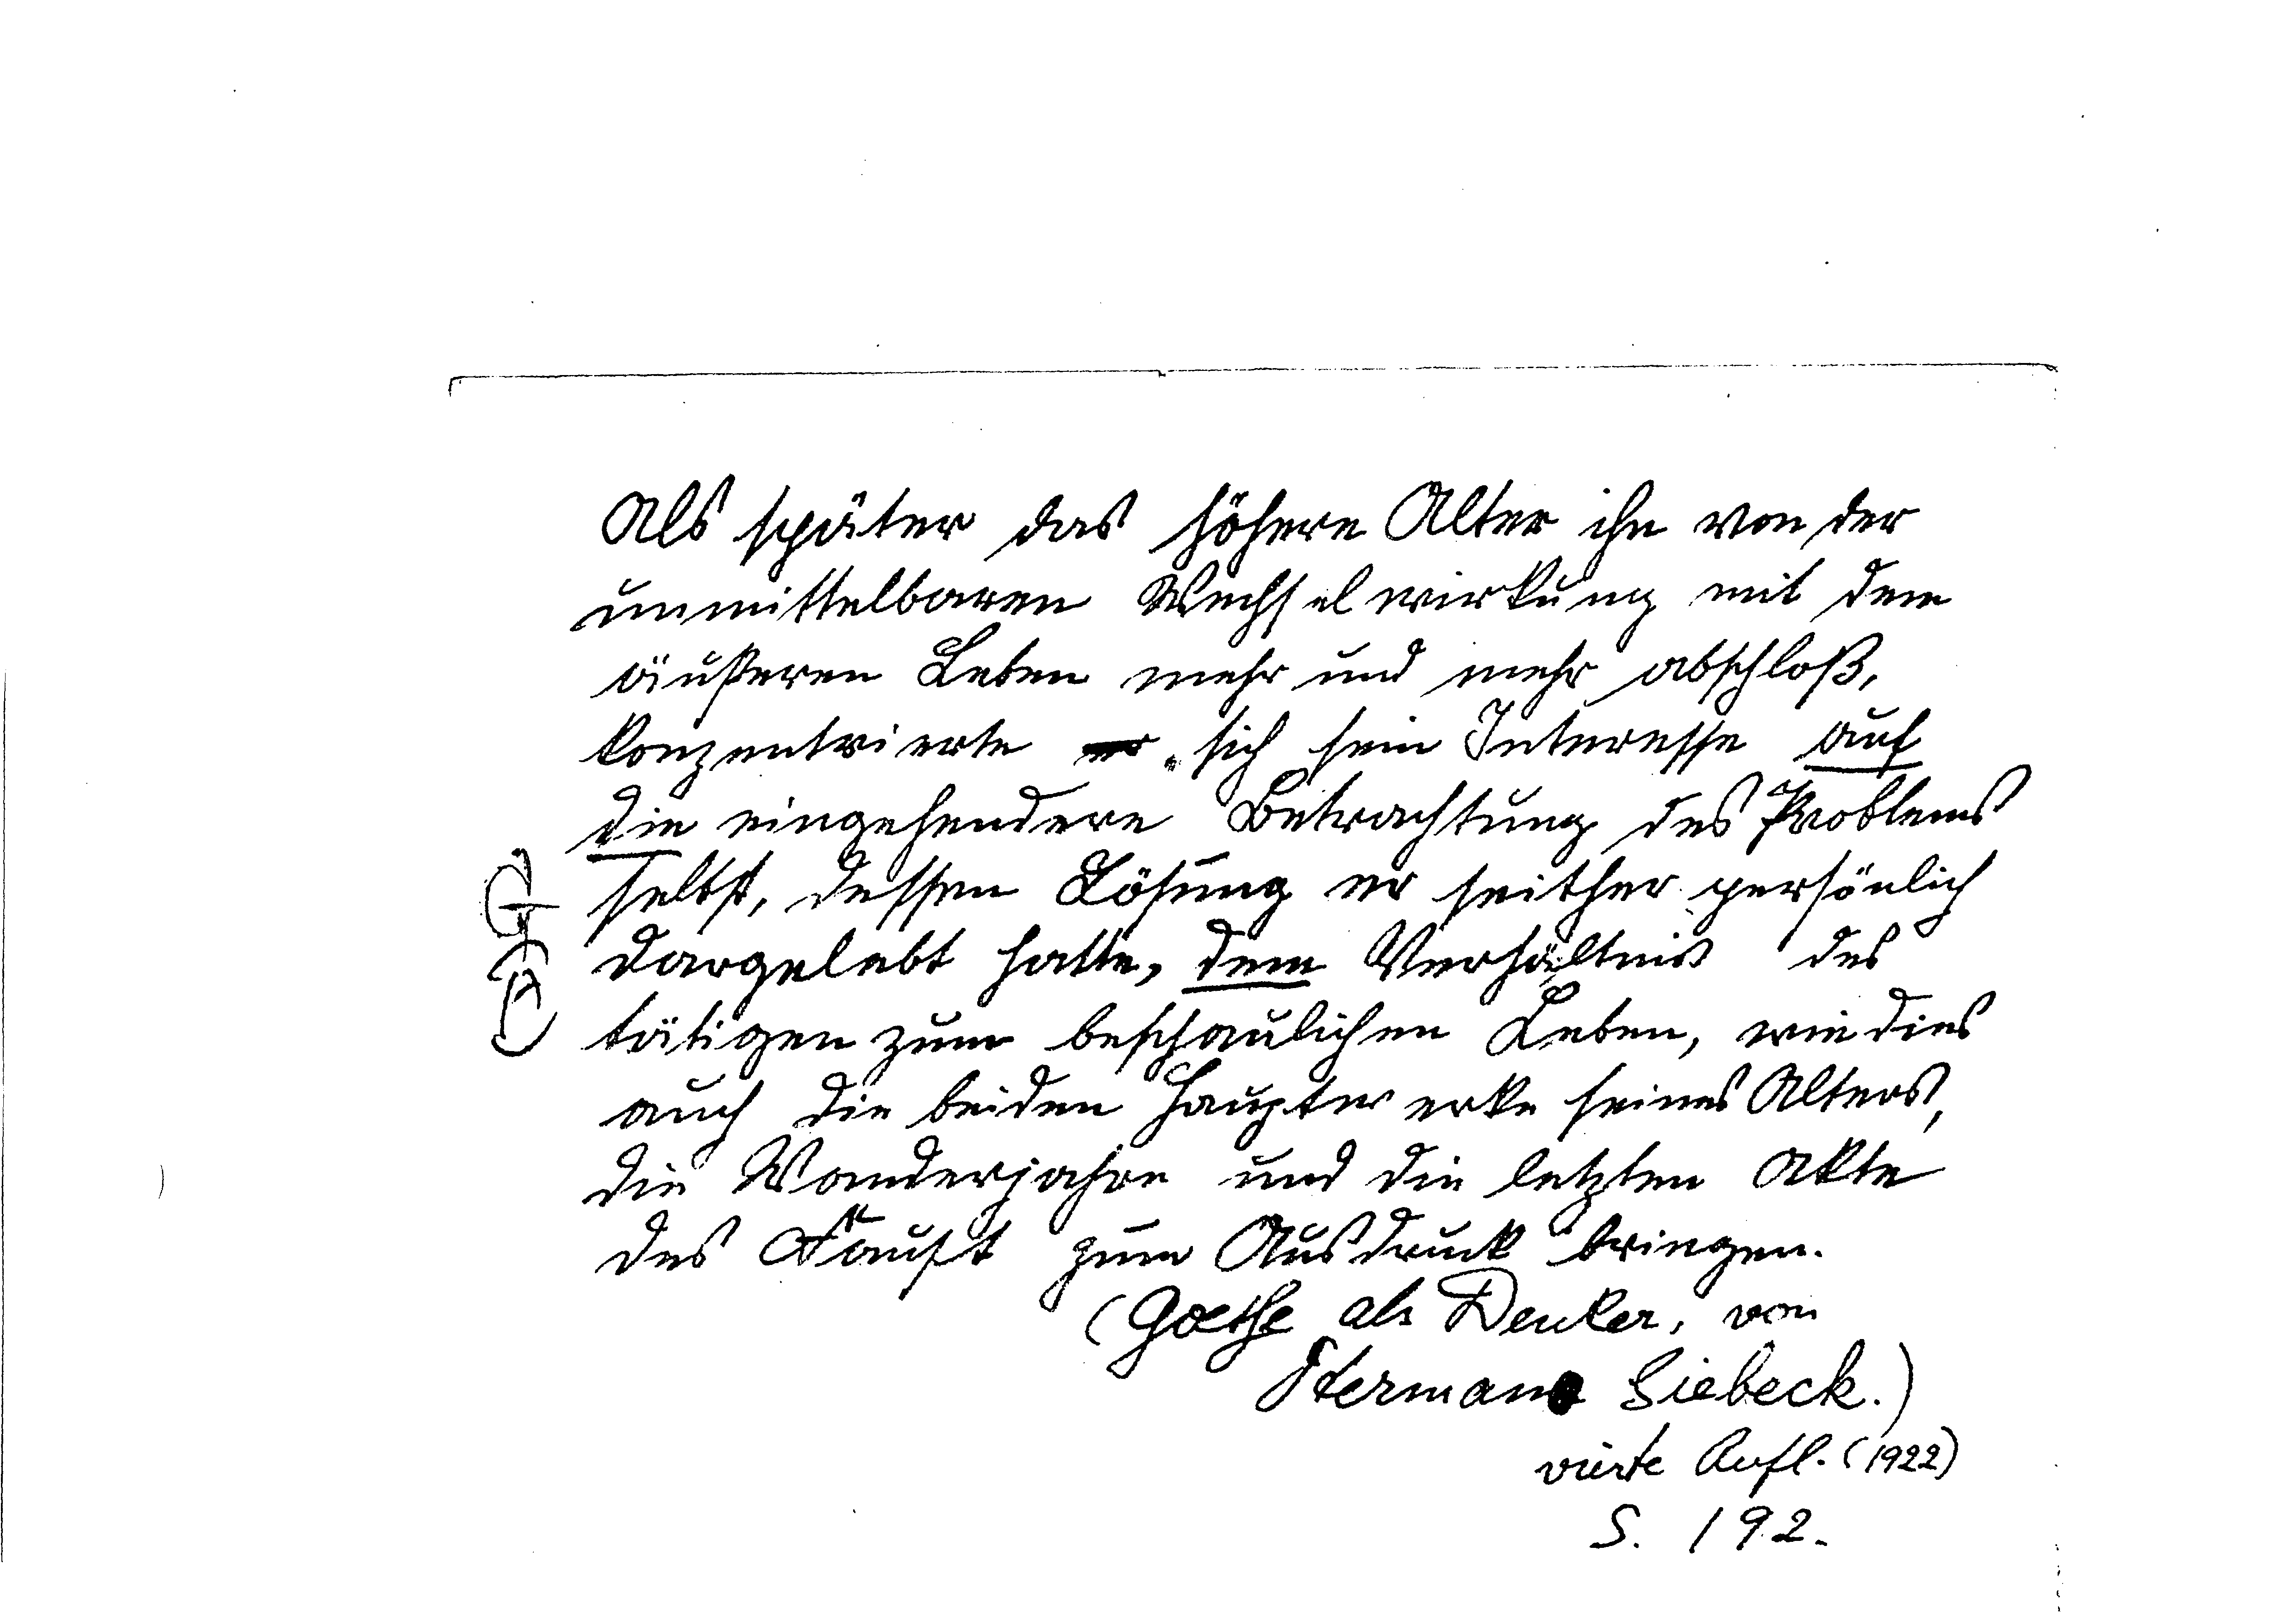 Als später das höhere Alter ihn von der
unmittelbaren Wechselwirkung mit dem
äußeren Leben mehr und mehr abschloß,
konzentrierte er sich sein Interesse auf
die eingehendere Betrachtung des Problems
selbst, dessen Lösung er seither persönlich
dargelebt hatte, dem Verhältnis des
tätigen zum beschaulichen Leben, wie dies
auch die beiden Hauptwerke seines Alters,
die Wanderjahre und die letzten Akte
des Faust zum Ausdruck bringen.
(Goethe als Denker, von
Hermann Siebeck.)
vierte Aufl. (1922)
S. 192.